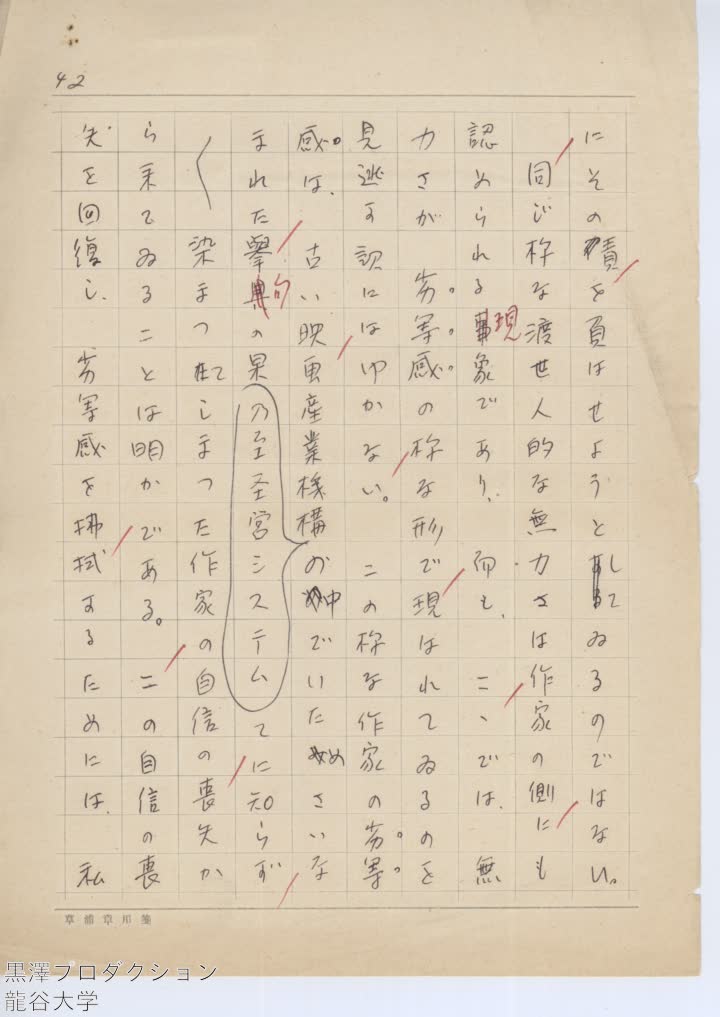 42
にその責を負はせようとしてゐるのではない。
同じ様な渡世人的な無力さは作家の側にも
認められる現象であり、而も、こゝでは、無
力さが劣等感の様な形で現はれてゐるのを
見逃す訳にはゆかない。この様な作家の劣等
感は、古い映画産業機構の中でいためさいな
まれた挙句の果のシステムてに知らず
染まつてしまつた作家の自信の喪失か
ら来てゐることは明かである。この自信の喪
失を回復し、劣等感を払拭するためには、私
黒澤プロダクション
龍谷大学